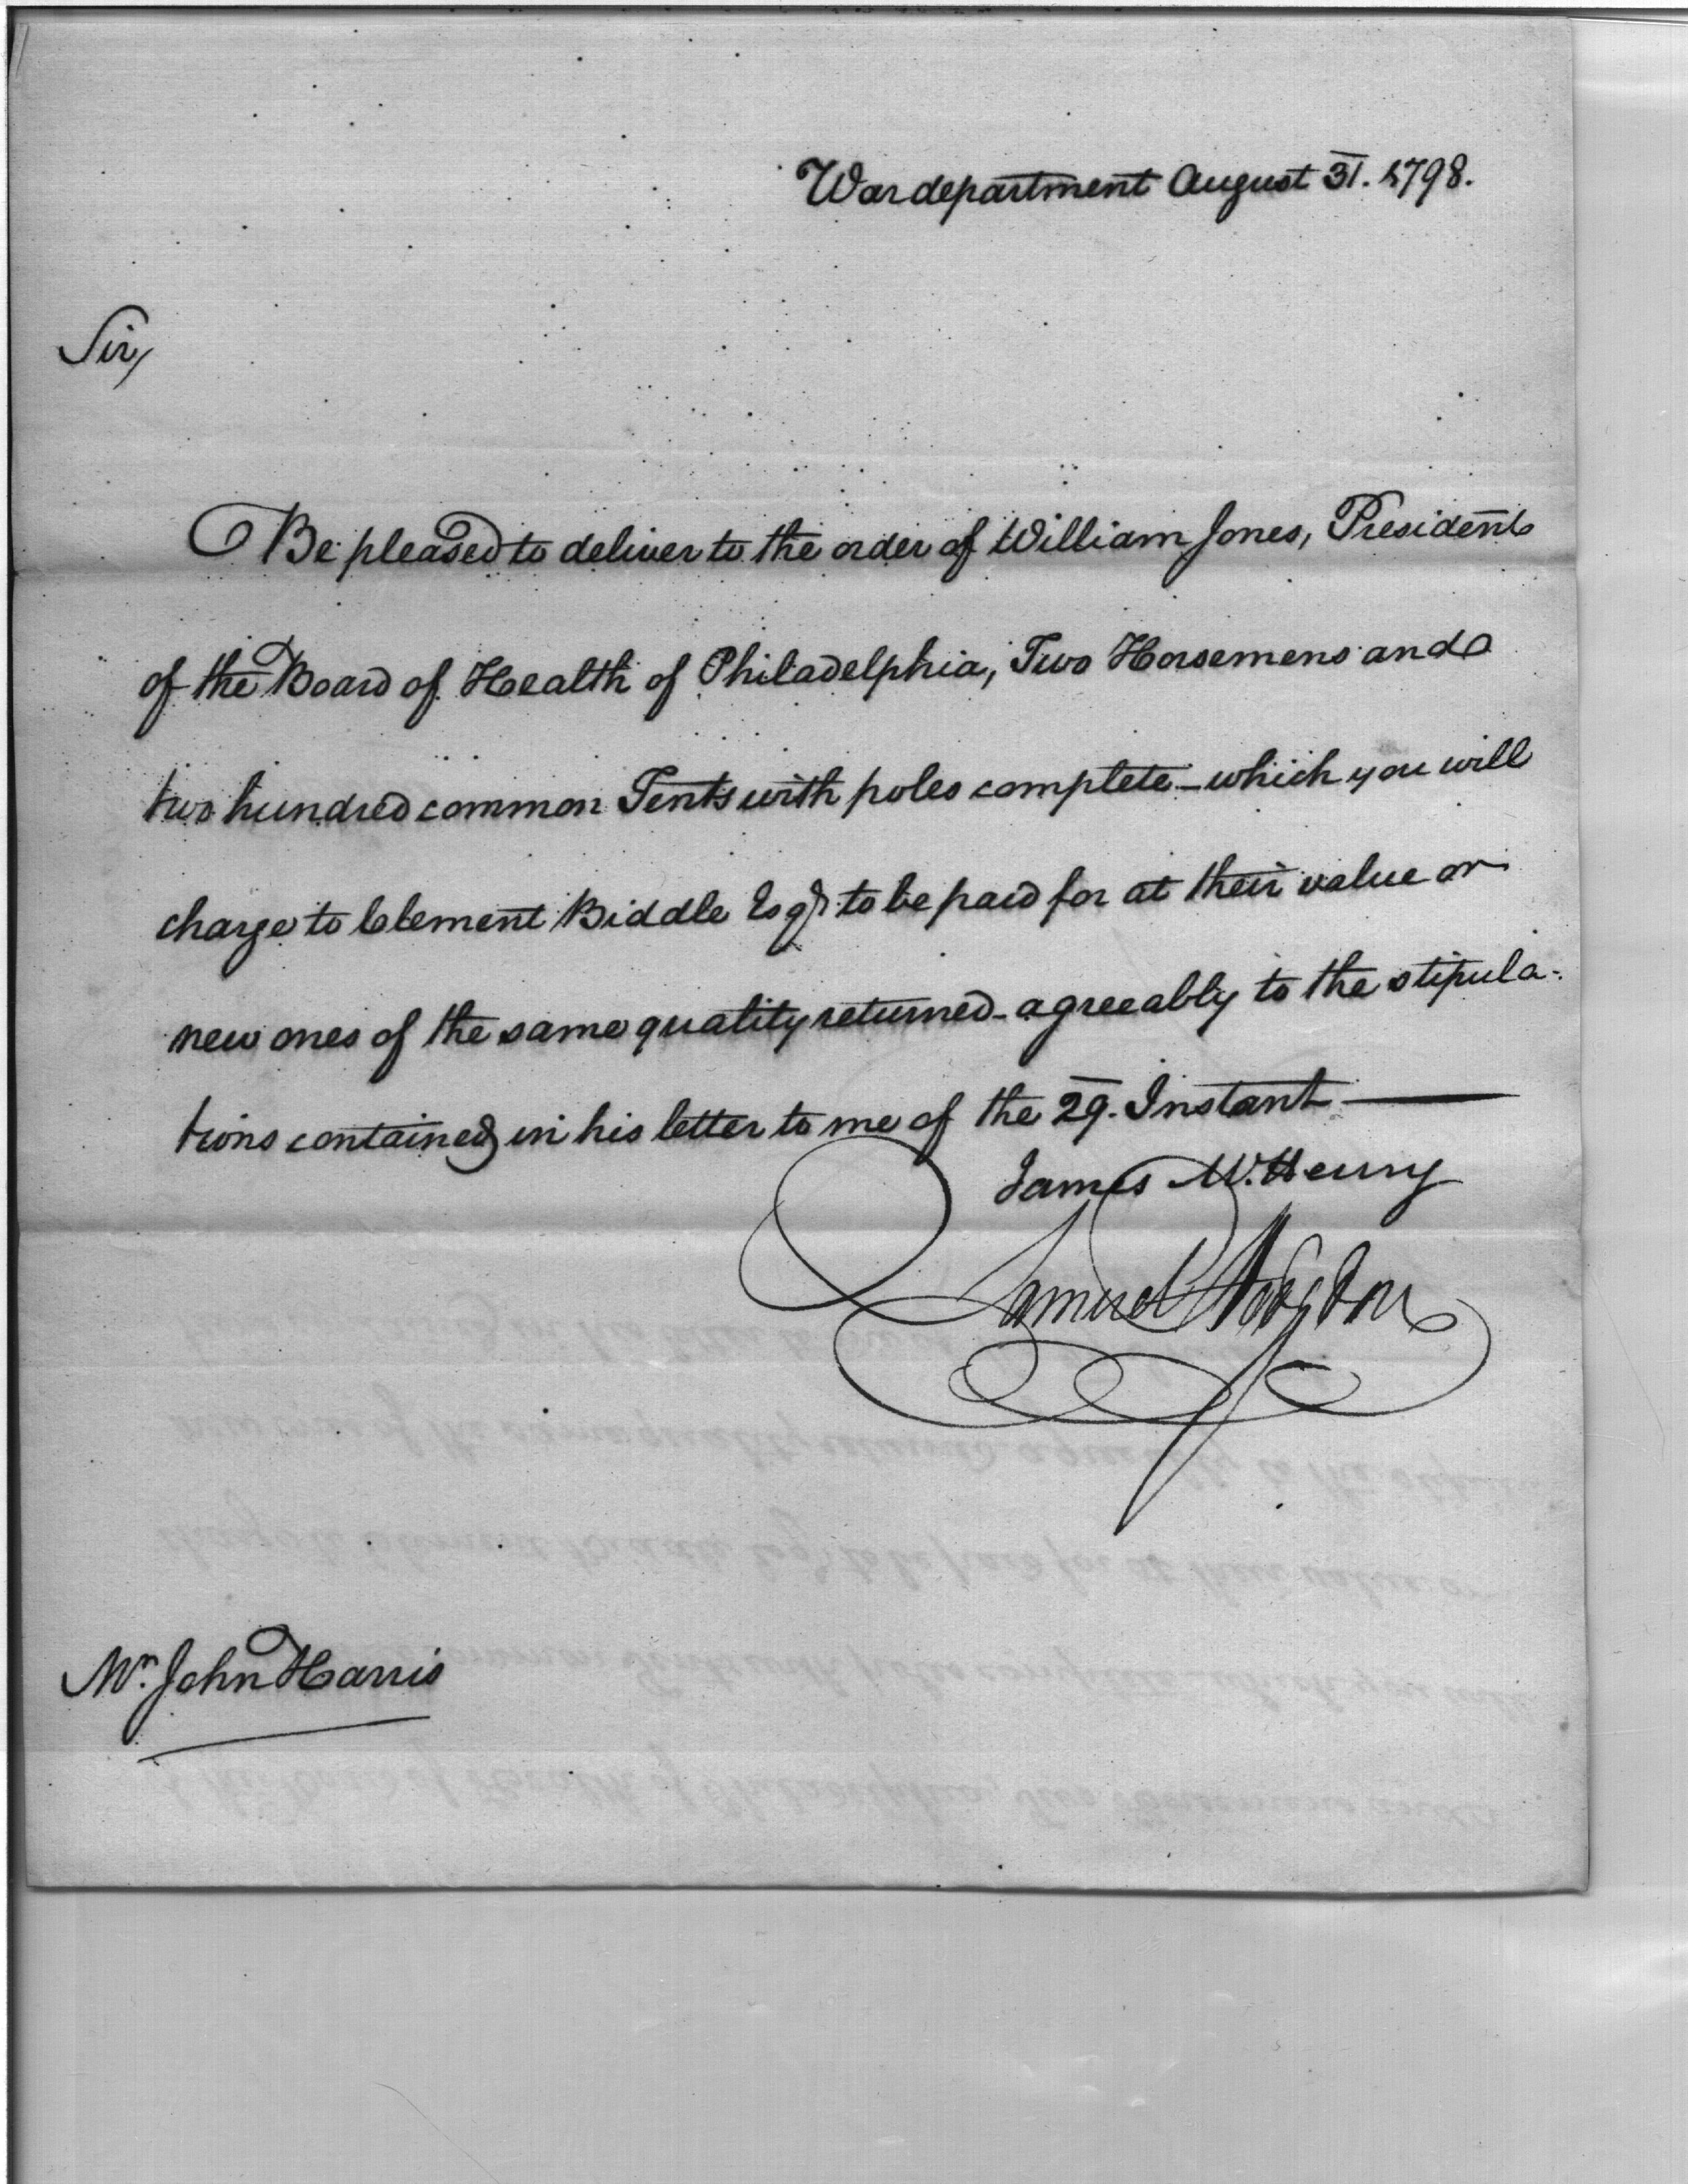 War department August 31. 1798.
Sir,
Be pleased to deliver to the order of William Jones, President
of the Board of Health of Philadelphia, Two Horsemens and
two hundred common Tents with poles complete - which you will
charge to Clement Biddle Esqr. to be paid for at their value or
new ones of the same quality returned - agreeably to the stipula-
tions contained in his letter to me of the 29. Instant
James McHenry
Samuel Hodgdon
Mr. John Harris